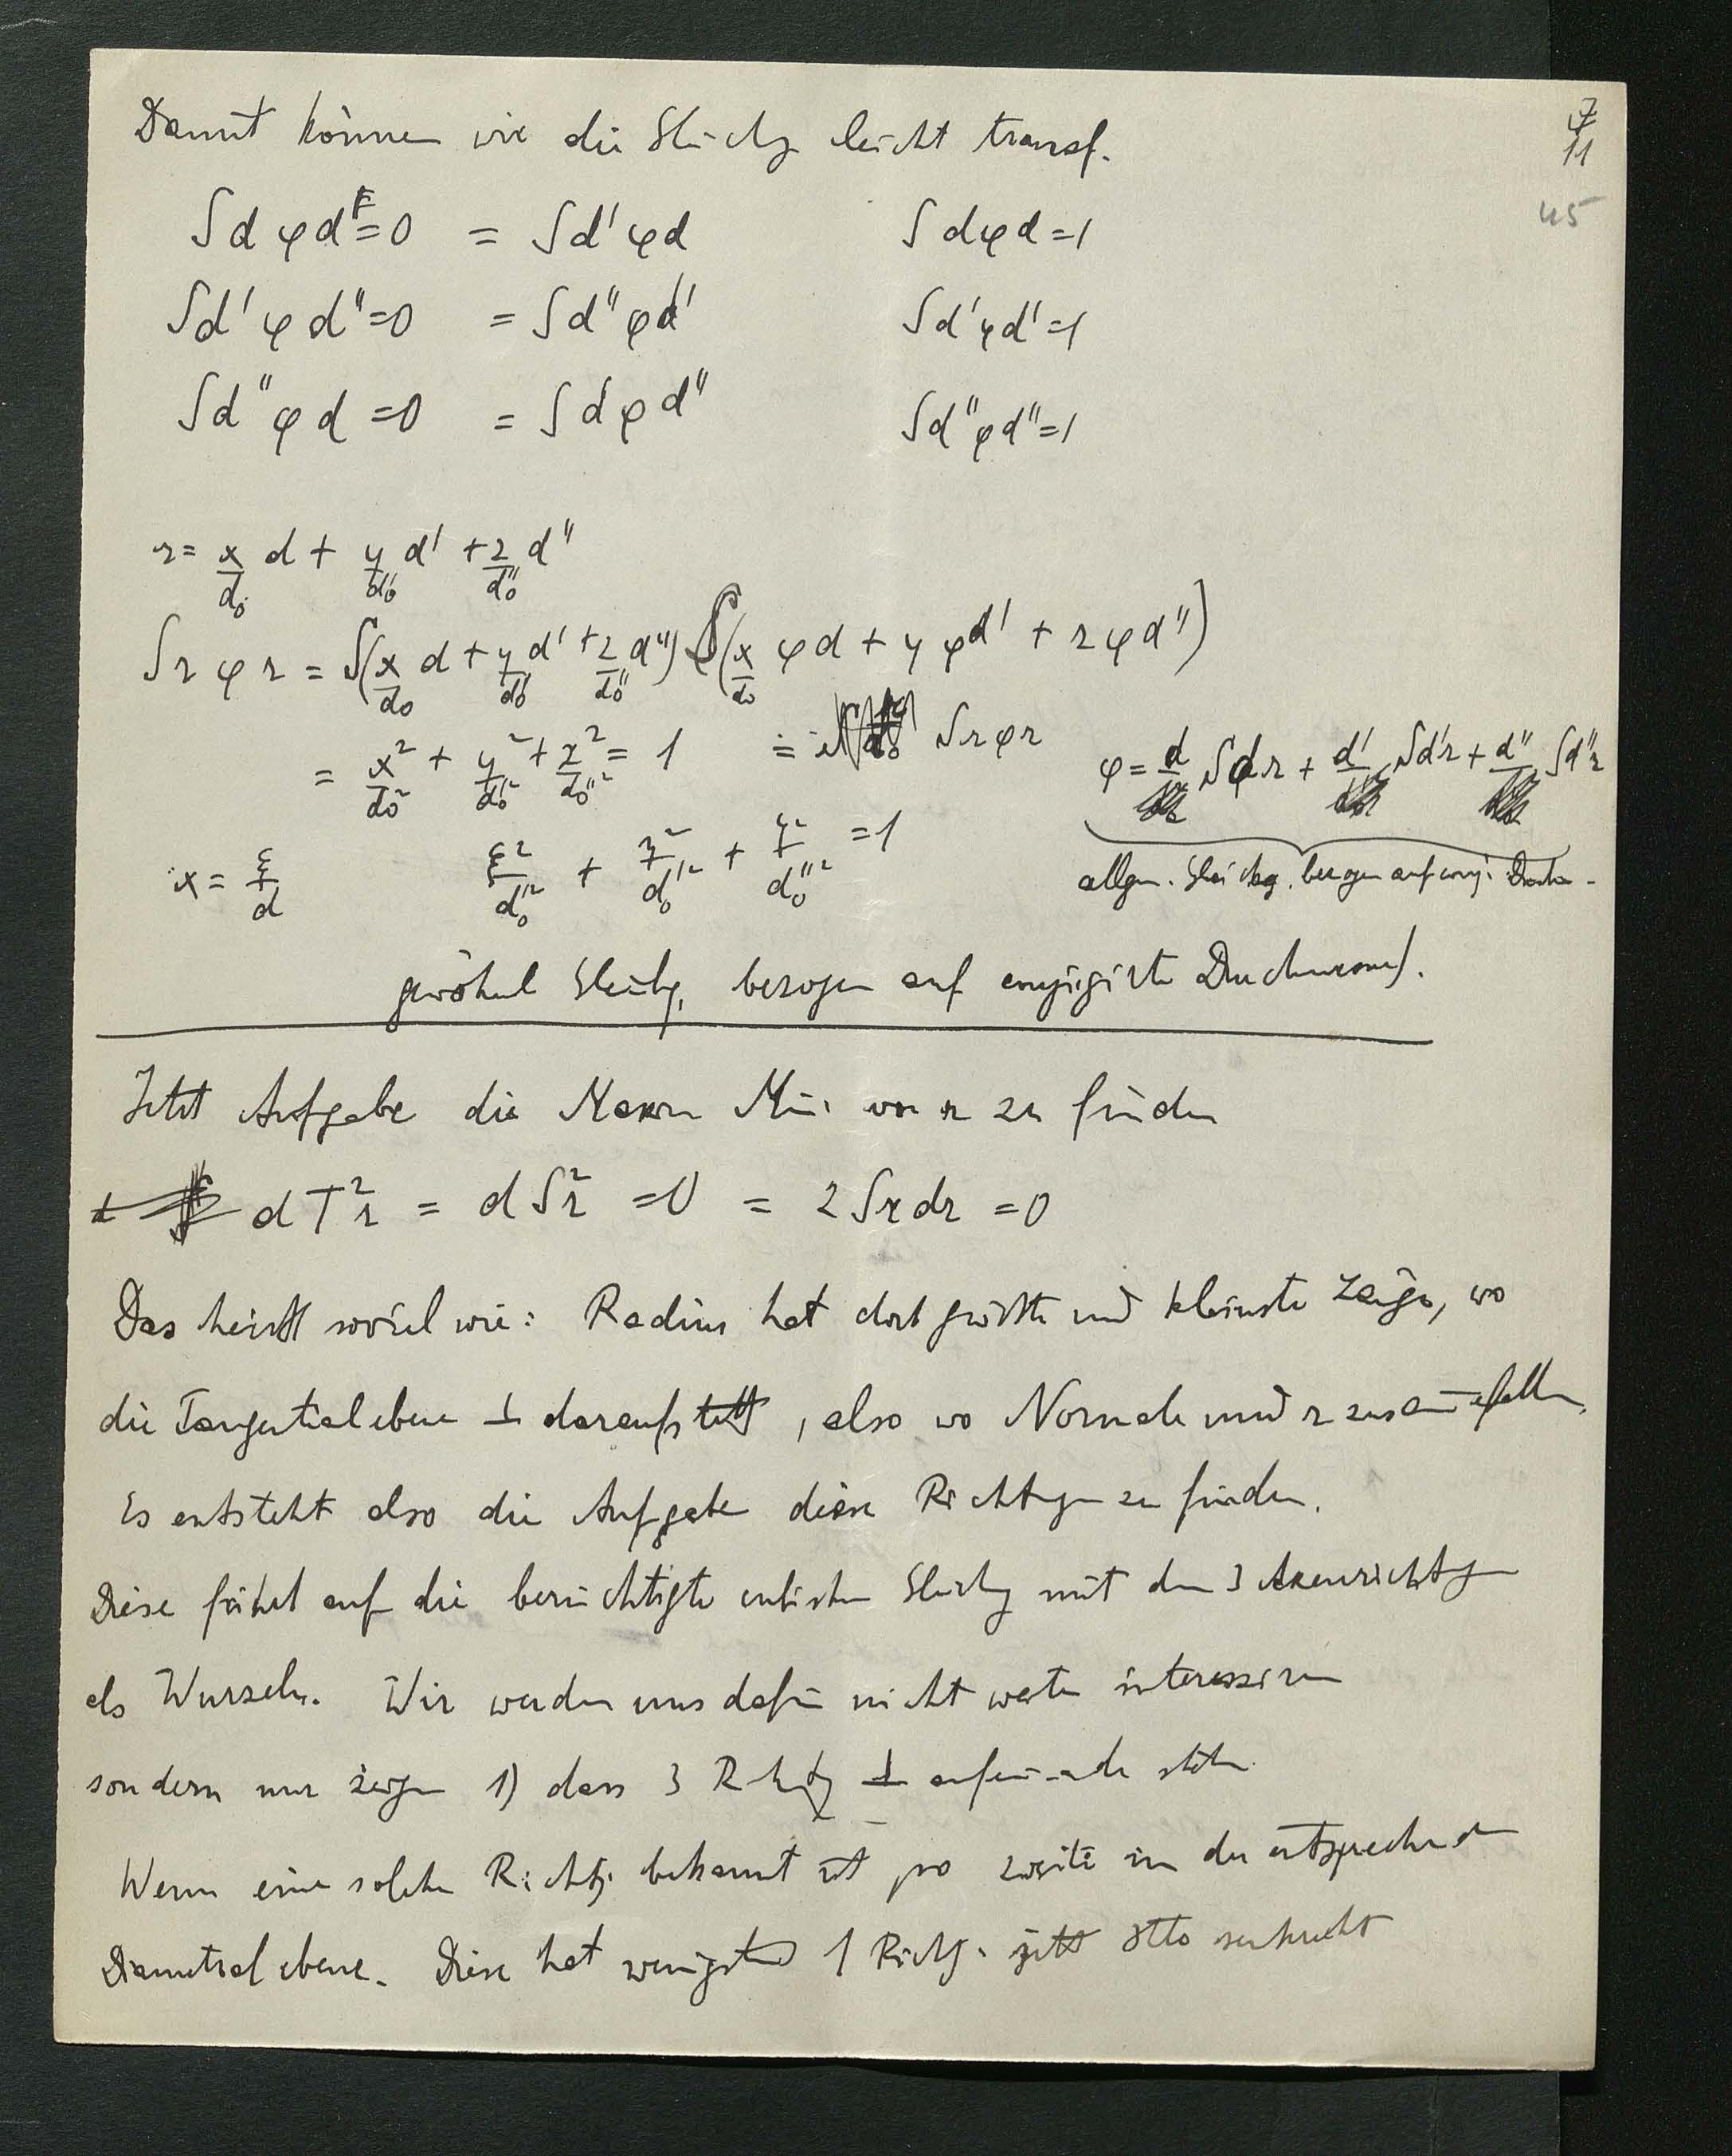 7
11
45
Damit können wir die Gleichg leicht transf.
∫dφd'=0 = ∫d'φd ∫dφd=1
∫d'φd''=0 = ∫d''φd' ∫d'φd'=1
∫d''φd=0 = ∫dφd'' ∫d''φd''=1
r = x/d₀ d + y/d₀' d' + z/d₀'' d''
∫rφr = ∫(x/d₀ d + y/d₀' d' + z/d₀'' d'') (x/d₀ φd + y φd' + z φd'')
= x²/d₀² + y²/d₀'² + z²/d₀''² = 1 = ∫rφr φ = d ∫dr + d' ∫d'r + d'' ∫d''r
x = ξ/d ξ²/d₀² + η²/d₀'² + ζ²/d₀''² = 1 allgm. Gleichg. bezogen auf conj.
gewöhnl Gleichg. bezogen auf conjugirte Durchmess.
Jetzt Aufgabe die Maxm Min von r zu finden
dT²r = dS²r = 0 = 2∫rdr = 0
Das heisst soviel wie: Radius hat dort grösste und kleinste Länge, wo
die Tangentialebene ⊥ darauf steht, also wo Normale und r zusammenfallen.
Es entsteht also die Aufgabe diese Richtungen zu finden.
Diese führt auf die berüchtigte cubische Gleichg mit den 3 Axenrichtgen
als Wurzeln. Wir werden uns dafür nicht weiter interessiren
sondern nur zeigen 1) dass 3 Richtg ⊥ aufeinander stehn
Wenn eine solche Richtg. bekannt ist so zweite in der entsprechenden
Diametralebene. Diese hat wenigstens 1 Richtg. jetzt senkrecht